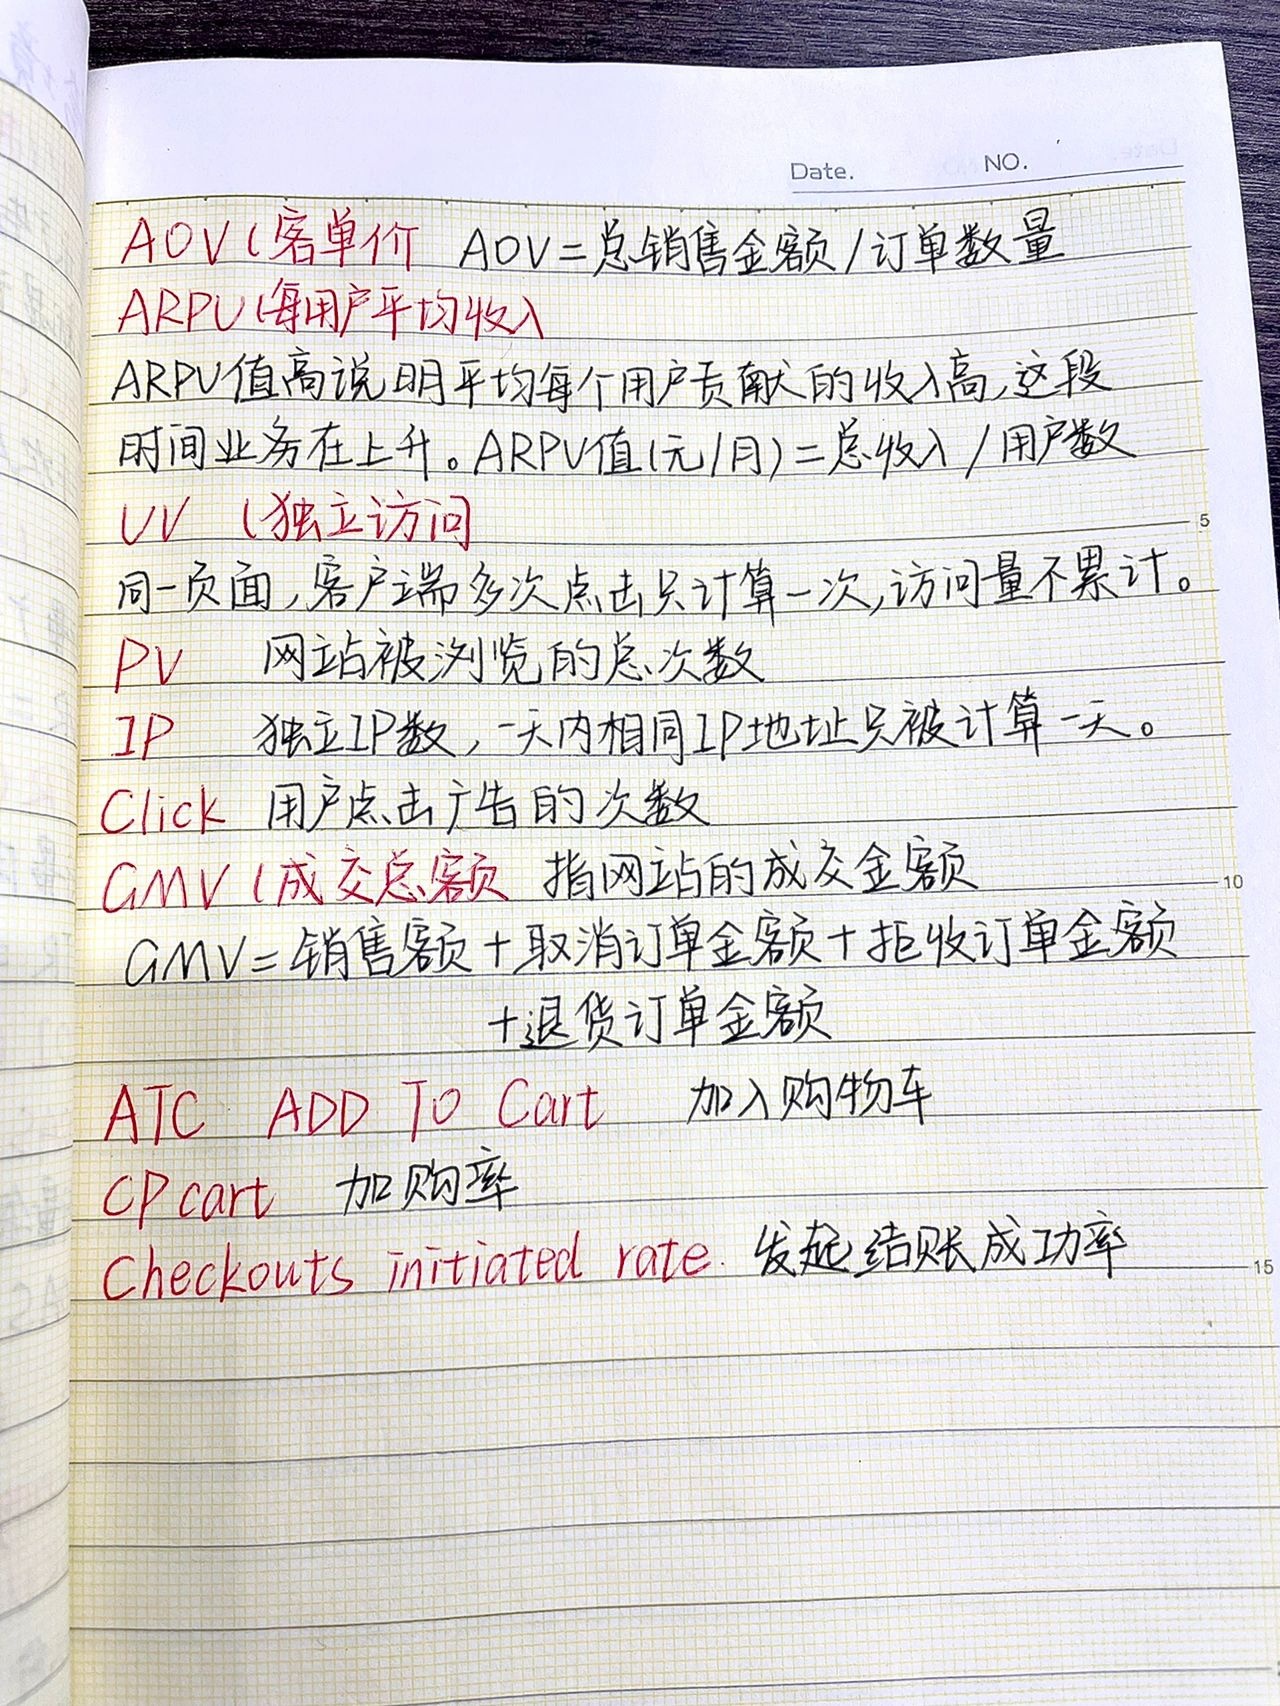 Date. NO.
AOV(客单价 AOV=总销售金额/订单数量
ARPU(每用户平均收入
ARPU值高说明平均每个用户贡献的收入高,这段
时间业务在上升。ARPU值(元/月)=总收入/用户数
UV (独立访问
5
同一页面,客户端多次点击只计算一次,访问量不累计。
PV 网站被浏览的总次数
IP 独立IP数,一天内相同IP地址只被计算一天。
Click 用户点击广告的次数
GMV(成交总额 指网站的成交金额
10
GMV=销售额+取消订单金额+拒收订单金额
+退货订单金额
ATC ADD To Cart 加入购物车
CPcart 加购率
Checkouts initiated rate. 发起结账成功率
15